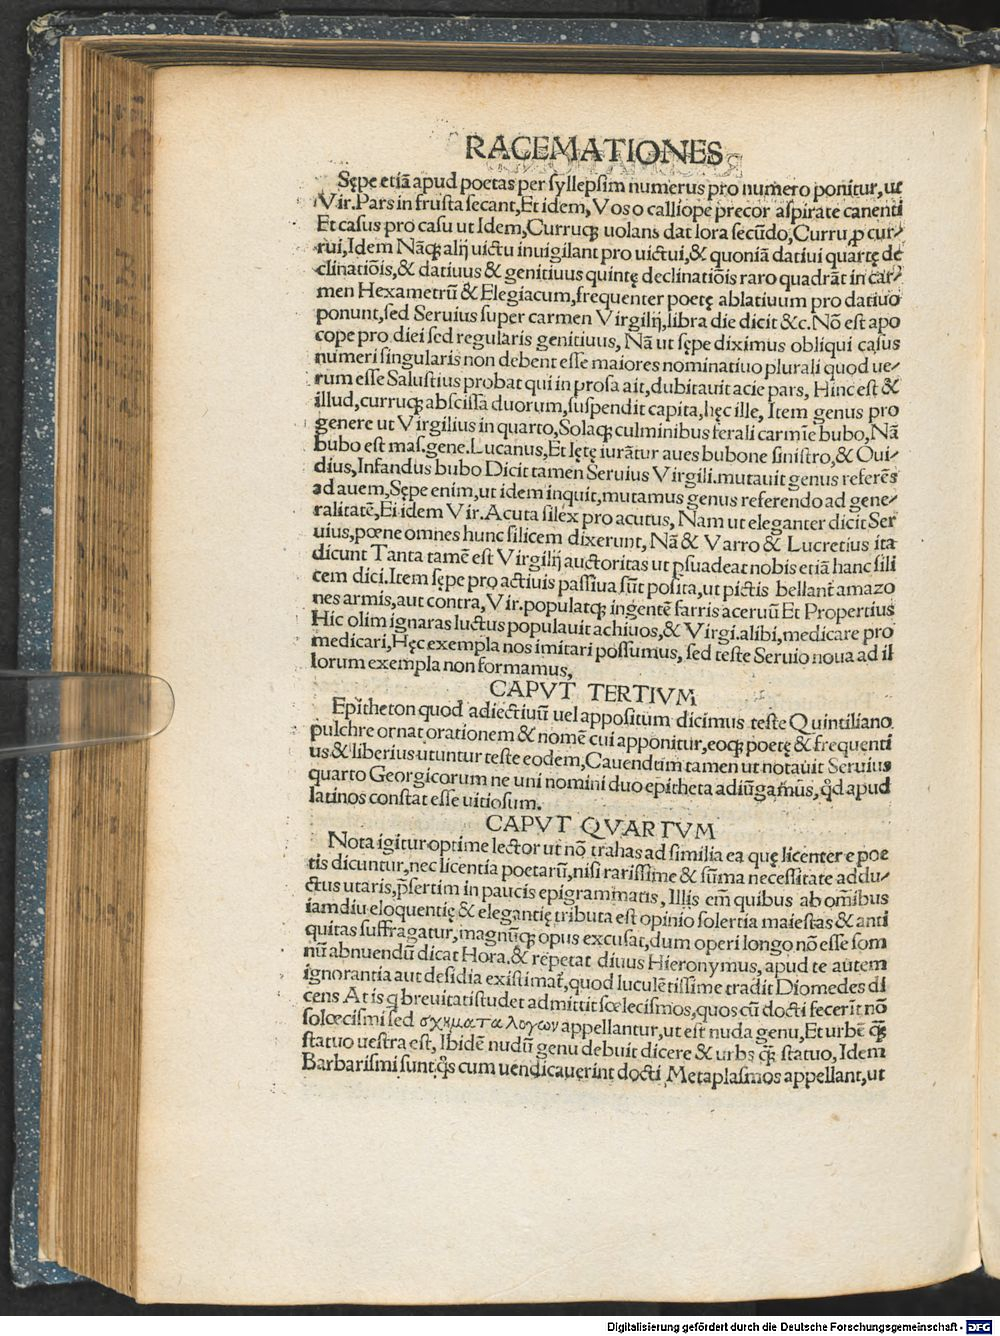 RACEMATIONES
Sępe etiã apud poetas per ſyllepſim numerus pro numero ponitur, ut
Vir. Pars in fruſta ſecant, Et idem, Vos o calliope precor aſpirate canenti
Et caſus pro caſu ut Idem, Curruqꝫ uolans dat lora ſecũdo, Curru, ꝓ cur⸗
rui, Idem Nãqꝫ alij uictu inuigilant pro uictui, & quoniã datiui quartę de
clinatiõis, & datiuus & genitiuus quintę declinatiõis raro quadrãt in car⸗
men Hexametrũ & Elegiacum, frequenter poetę ablatiuum pro datiuo
ponunt, ſed Seruius ſuper carmen Virgilij, libra die dicit &c. Nõ eſt apo
cope pro diei ſed regularis genitiuus, Nã ut ſępe diximus obliqui caſus
numeri ſingularis non debent eſſe maiores nominatiuo plurali quod ue⸗
rum eſſe Saluſtius probat qui in proſa ait, dubitauit acie pars, Hinc eſt &
illud, curruqꝫ abſciſſa duorum, ſuſpendit capita, hęc ille, Item genus pro
genere ut Virgilius in quarto, Solaqꝫ culminibus ferali carmĩe bubo, Nã
bubo eſt maſ. gene. Lucanus, Et lętę iurãtur aues bubone ſiniſtro, & Oui⸗
dius, Infandus bubo Dicit tamen Seruius Virgili. mutauit genus referẽs
ad auem, Sępe enim, ut idem inquit, mutamus genus referendo ad gene⸗
ralitatẽ, Ei idem Vir. Acuta ſilex pro acutus, Nam ut eleganter dicit Ser
uius, pœne omnes hunc ſilicem dixerunt, Nã & Varro & Lucretius ita
dicunt Tanta tamẽ eſt Virgilij auctoritas ut ꝑſuadeat nobis etiã hanc ſili
cem dici. Item ſępe pro actiuis paſſiua ſũt poſita, ut pictis bellant̃ amazo
nes armis, aut contra, Vir. populatqꝫ ingentẽ farris aceruũ Et Propertius
Hic olim ignaras luctus populauit achiuos, & Virgi. alibi, medicare pro
medicari, Hęc exempla nos imitari poſſumus, ſed teſte Seruio noua ad il
lorum exempla non formamus,
CAPVT TERTIVM
Epitheton quod adiectiuũ uel appoſitum dicimus teſte Quintiliano
pulchre ornat orationem & nomẽ cui apponitur, eoqꝫ poetę & frequenti
us & liberius utuntur teſte eodem, Cauendum tamen ut notauit Seruius
quarto Georgicorum ne uni nomini duo epitheta adiũgamus, qd̃ apud
latinos conſtat eſſe uitioſum.
CAPVT QVARTVM
Nota igitur optime lector ut nõ trahas ad ſimilia ea quę licenter e poe
tis dicuntur, nec licentia poetarũ, niſi rariſſime & ſũma neceſſitate addu⸗
ctus utaris, p̃ſertim in paucis epigrammatis, Illis em̃ quibus ab om̃ibus
iamdiu eloquentię & elegantię tributa eſt opinio ſolertia maieſtas & anti
quitas ſuffragatur, magnũqꝫ opus excuſat, dum operi longo nõ eſſe ſom
nũ abnuendũ dicat Hora. & repetat diuus Hieronymus, apud te autem
ignorantia aut deſidia exiſtimat̃, quod luculẽtiſſime tradit Diomedes di
cens At is q breuitati ſtudet admittit ſcœleciſmos, quos cũ docti fecerĩt nõ
ſolœciſmi ſed σχηματα λογων appellantur, ut eſt nuda genu, Et urbẽ quã
ſtatuo ueſtra eſt, Ibidẽ nudũ genu debuit dicere & urbs quã ſtatuo, Idem
Barbariſmi ſunt quos cum uendicauerint docti Metaplaſmos appellant, ut
Digitalisierung gefördert durch die Deutsche Forschungsgemeinschaft - DFG